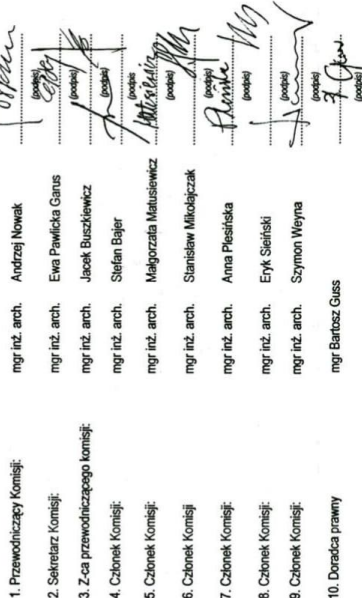 1. Przewodniczący Komisji: mgr inż. arch. Andrzej Nowak
(podpis)
2. Sekretarz Komisji: mgr inż. arch. Ewa Pawlicka Garus
(podpis)
3. Z-ca przewodniczącego komisji: mgr inż. arch. Jacek Buszkiewicz
(podpis)
4. Członek Komisji: mgr inż. arch. Stefan Bajer
(podpis)
5. Członek Komisji mgr inż. arch. Małgorzata Matusiewicz
(podpis)
6. Członek Komisji mgr inż. arch. Stanisław Mikołajczak
(podpis)
7. Członek Komisji: mgr inż. arch. Anna Plesińska
(podpis)
8. Członek Komisji: mgr inż. arch. Eryk Sieiński
(podpis)
9. Członek Komisji: mgr inż. arch. Szymon Weyna
(podpis)
10. Doradca prawny mgr Bartosz Guss
(podpis)